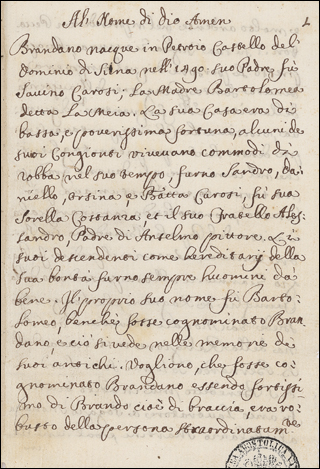 Al Nome di dio Amen
1
Brandano nacque in Petroio Castello del
Dominio di Siena nell' 1490. suo Padre fù
Savino Carosi; La Madre Bartolomea
detta La Meia. La sua Casa era di
bassa, e poverissima fortuna, alcuni de
suoi Congionti vivevano commodi di
robba nel suo tempo, furno Sandro, Da,
niello, Orsina e Batta Carosi, fù sua
sorella Costanza, et il suo fratello Ales,
sandro, Padre di Anselmo pittore. Li
suoi descendenti come hereditarij della
sua bontà furno sempre huomini da
bene. Il proprio suo nome fù Barto:
lomeo, benche fosse cognominato Bran,
dano, e ciò si vede nelle memorie de
suoi antichi. Vogliono, che fosse co,
gnominato Brandano essendo fortissi,
mo di Brando cioè di braccia, era ro,
busto della persona straordinariam.te